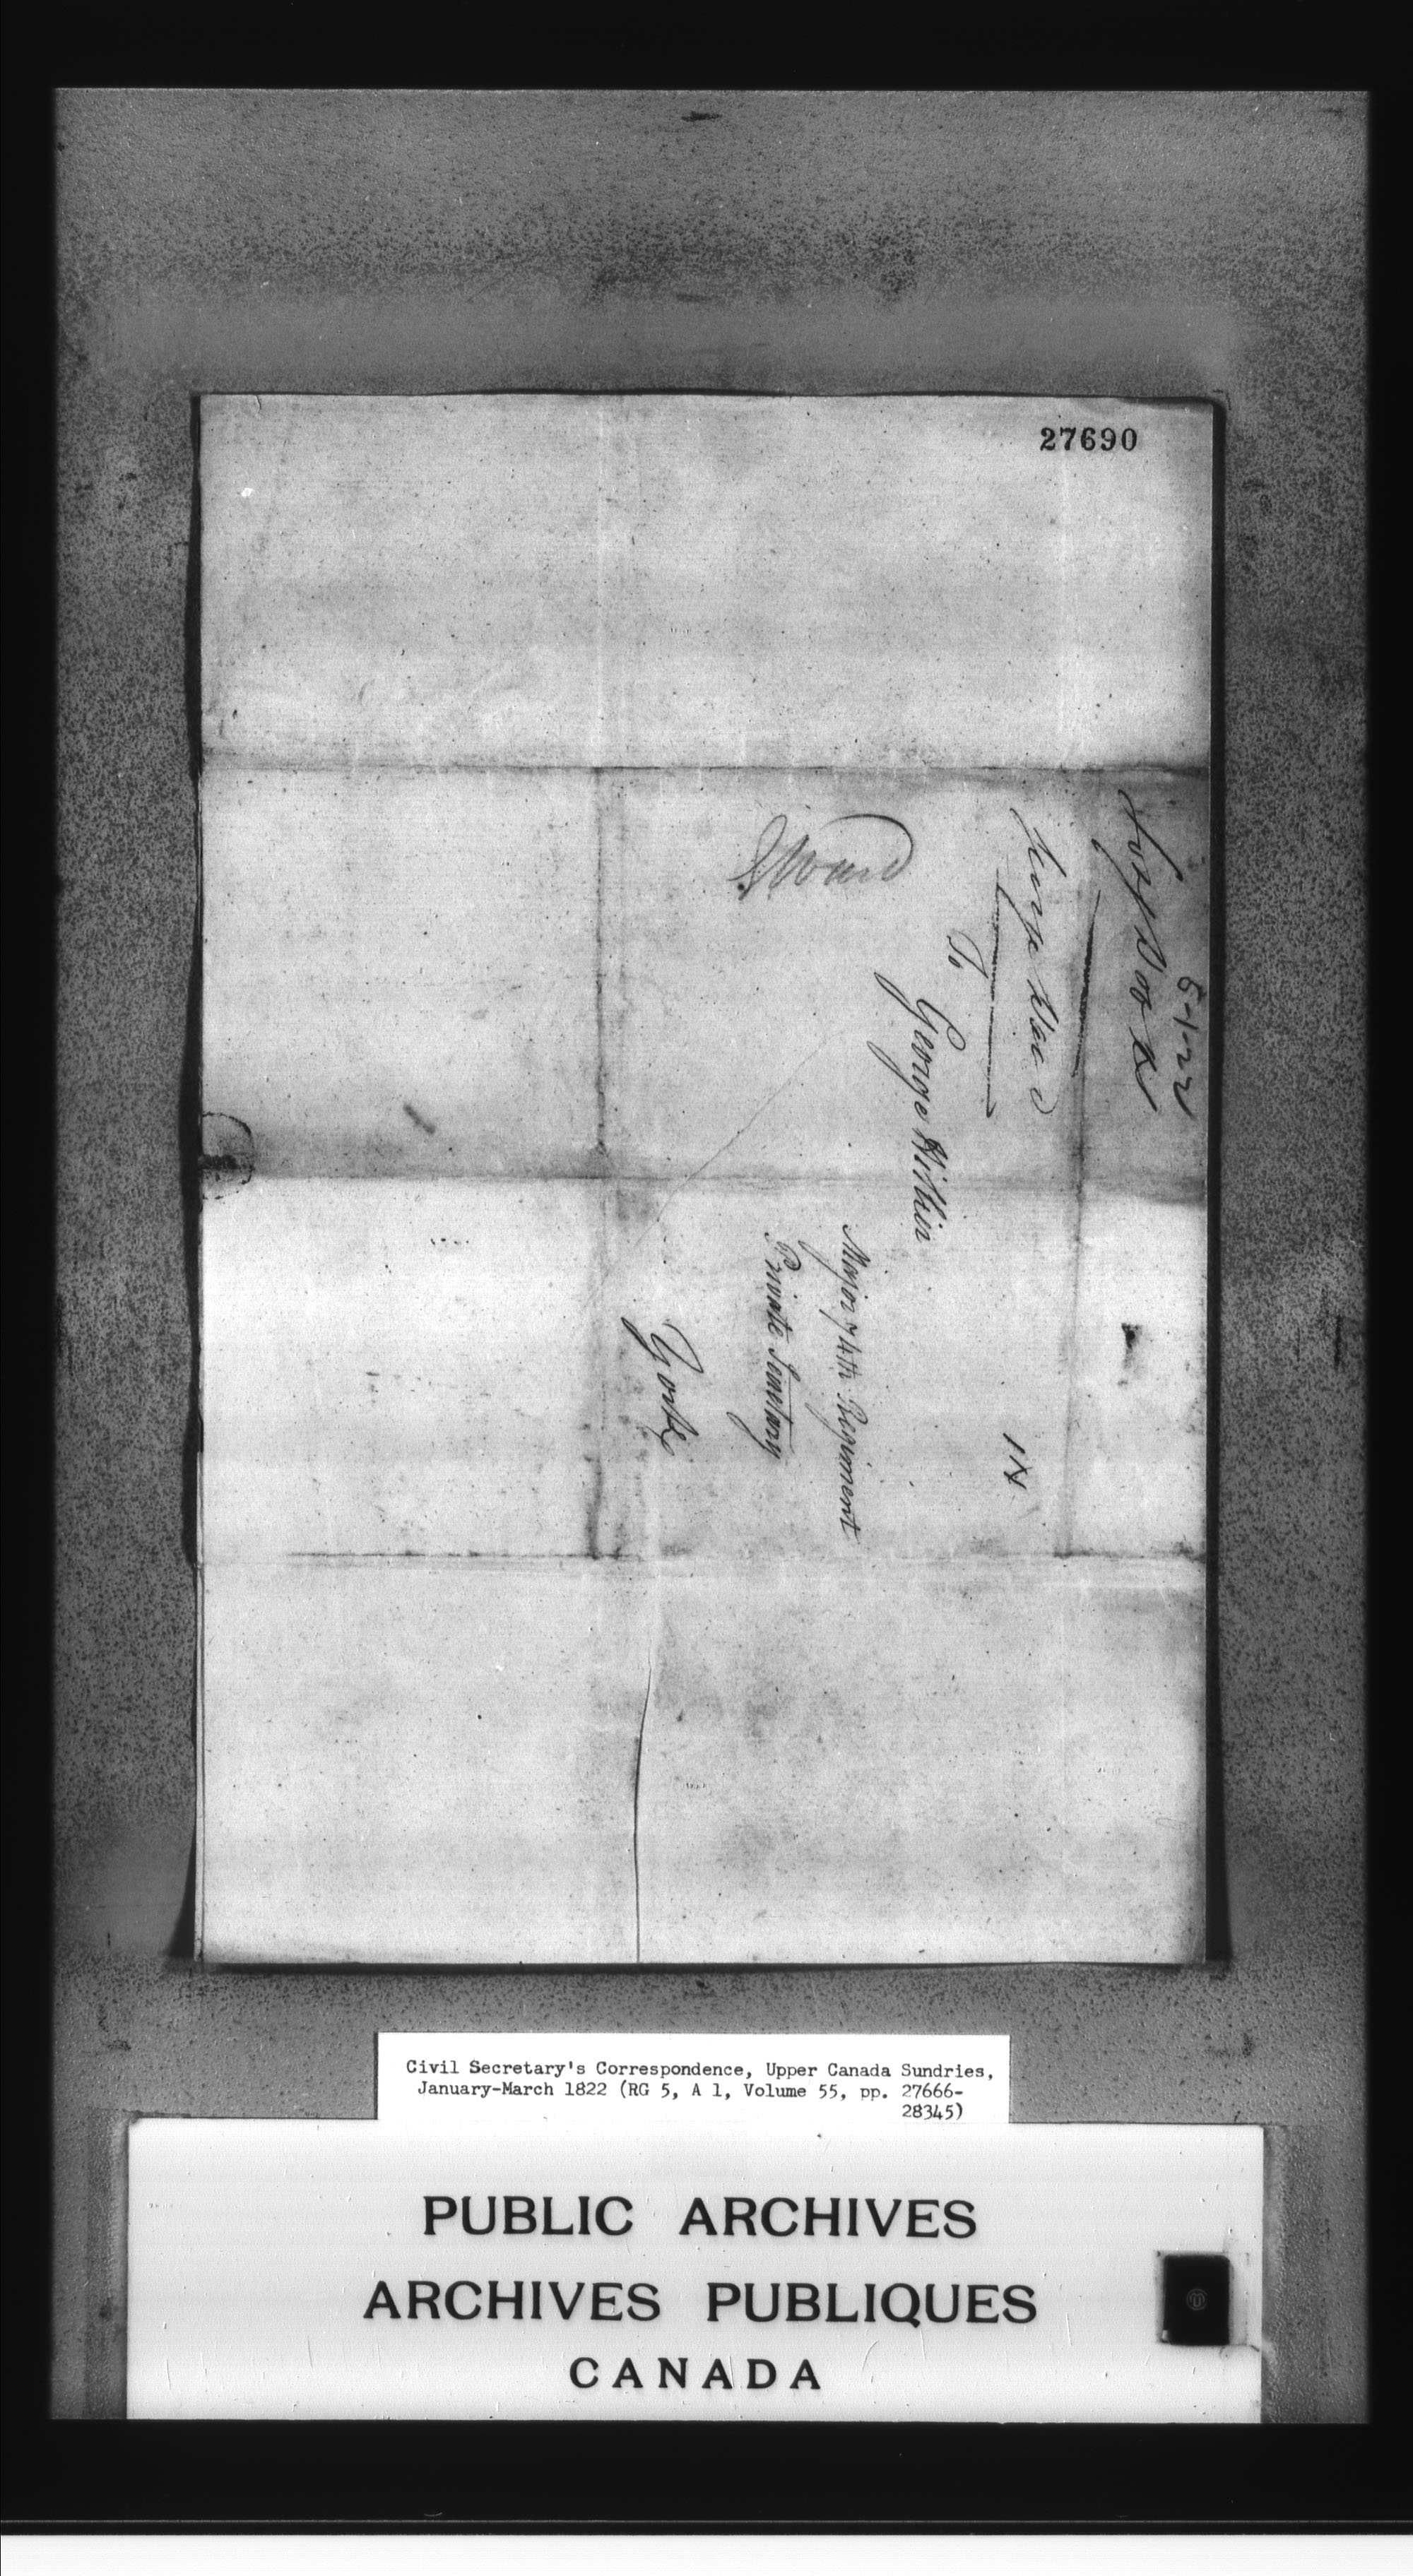 27690
5-1-22
George Ward
To
George Hillier
Major 74th Regiment
Private Secretary
York
GWard
Civil Secretary's Correspondence, Upper Canada Sundries,
January-March 1822 (RG 5, A 1, Volume 55, pp. 27666-
28345)
PUBLIC ARCHIVES
ARCHIVES PUBLIQUES
CANADA